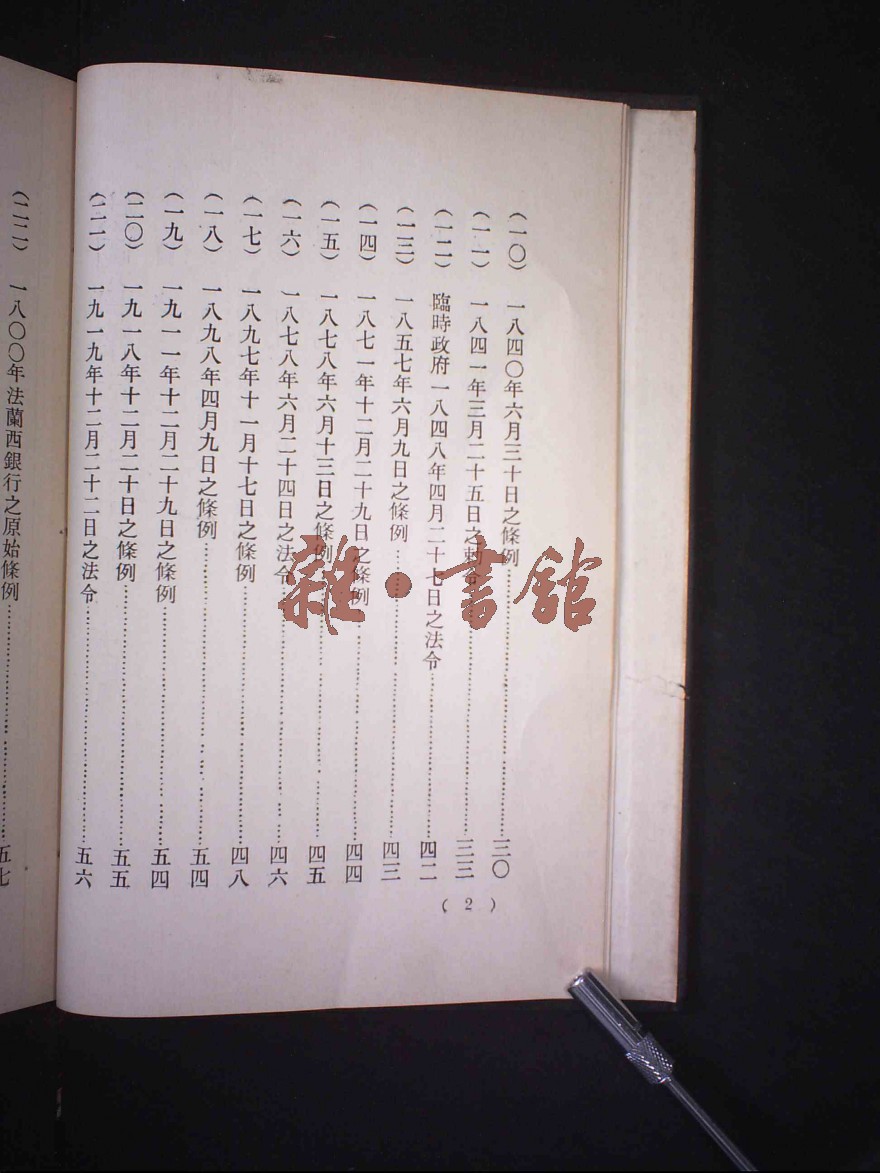 （一〇）　一八四〇年六月三十日之條例……三〇
（一一）　一八四一年三月二十五日之勅令……三三
（一二）　臨時政府一八四八年四月二十七日之法令……四二
（一三）　一八五七年六月九日之條例……四三
（一四）　一八七一年十二月二十九日之條例……四四
（一五）　一八七八年六月十三日之條例……四五
（一六）　一八七八年六月二十四日之法令……四六
（一七）　一八九七年十一月十七日之條例……四八
（一八）　一八九八年四月九日之條例……五四
（一九）　一九一一年十二月二十九日之條例……五四
（二〇）　一九一八年十二月二十日之條例……五五
（二一）　一九一九年十二月二十二日之法令……五六
（2）
（二二）　一八〇〇年法蘭西銀行之原始條例……五七
雜·書館